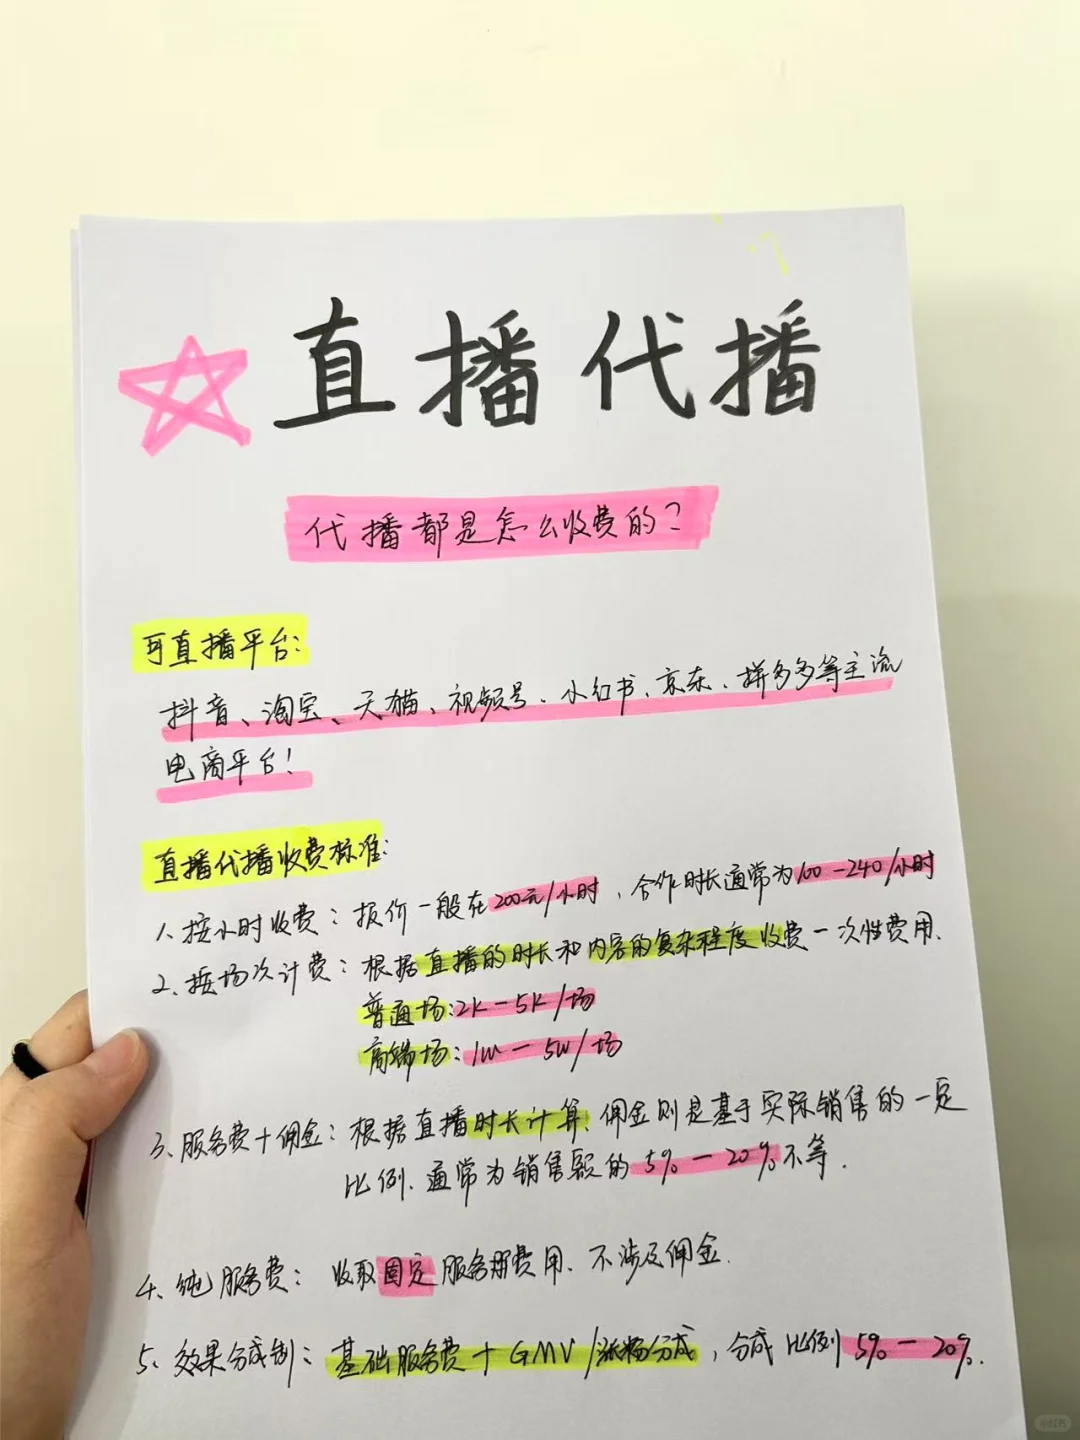 直播代播
代播都是怎么收费的?
可直播平台:
抖音、淘宝、天猫、视频号、小红书、京东、拼多多等主流
电商平台!
直播代播收费标准:
1、按小时收费:报价一般在200元/小时,合作时长通常为100-240/小时
2、按场次计费:根据直播的时长和内容的复杂程度收费一次性费用、
普通场:2K-5K/场
高端场:1W-5W/场
3、服务费+佣金:根据直播时长计算,佣金则是基于实际销售的一定
比例、通常为销售额的5%-20%不等.
4、纯服务费:收取固定服务费用、不涉及佣金.
5、效果分成制:基础服务费+GMV/涨粉分成,分成比例5%-20%.
小红书